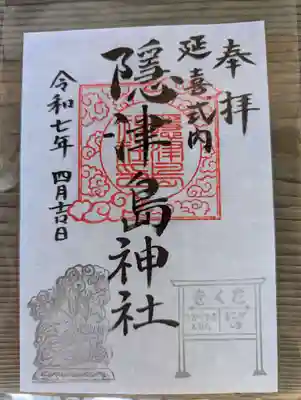 奉拝
延喜式内
隠津島神社
令和七年 四月吉日
きくた